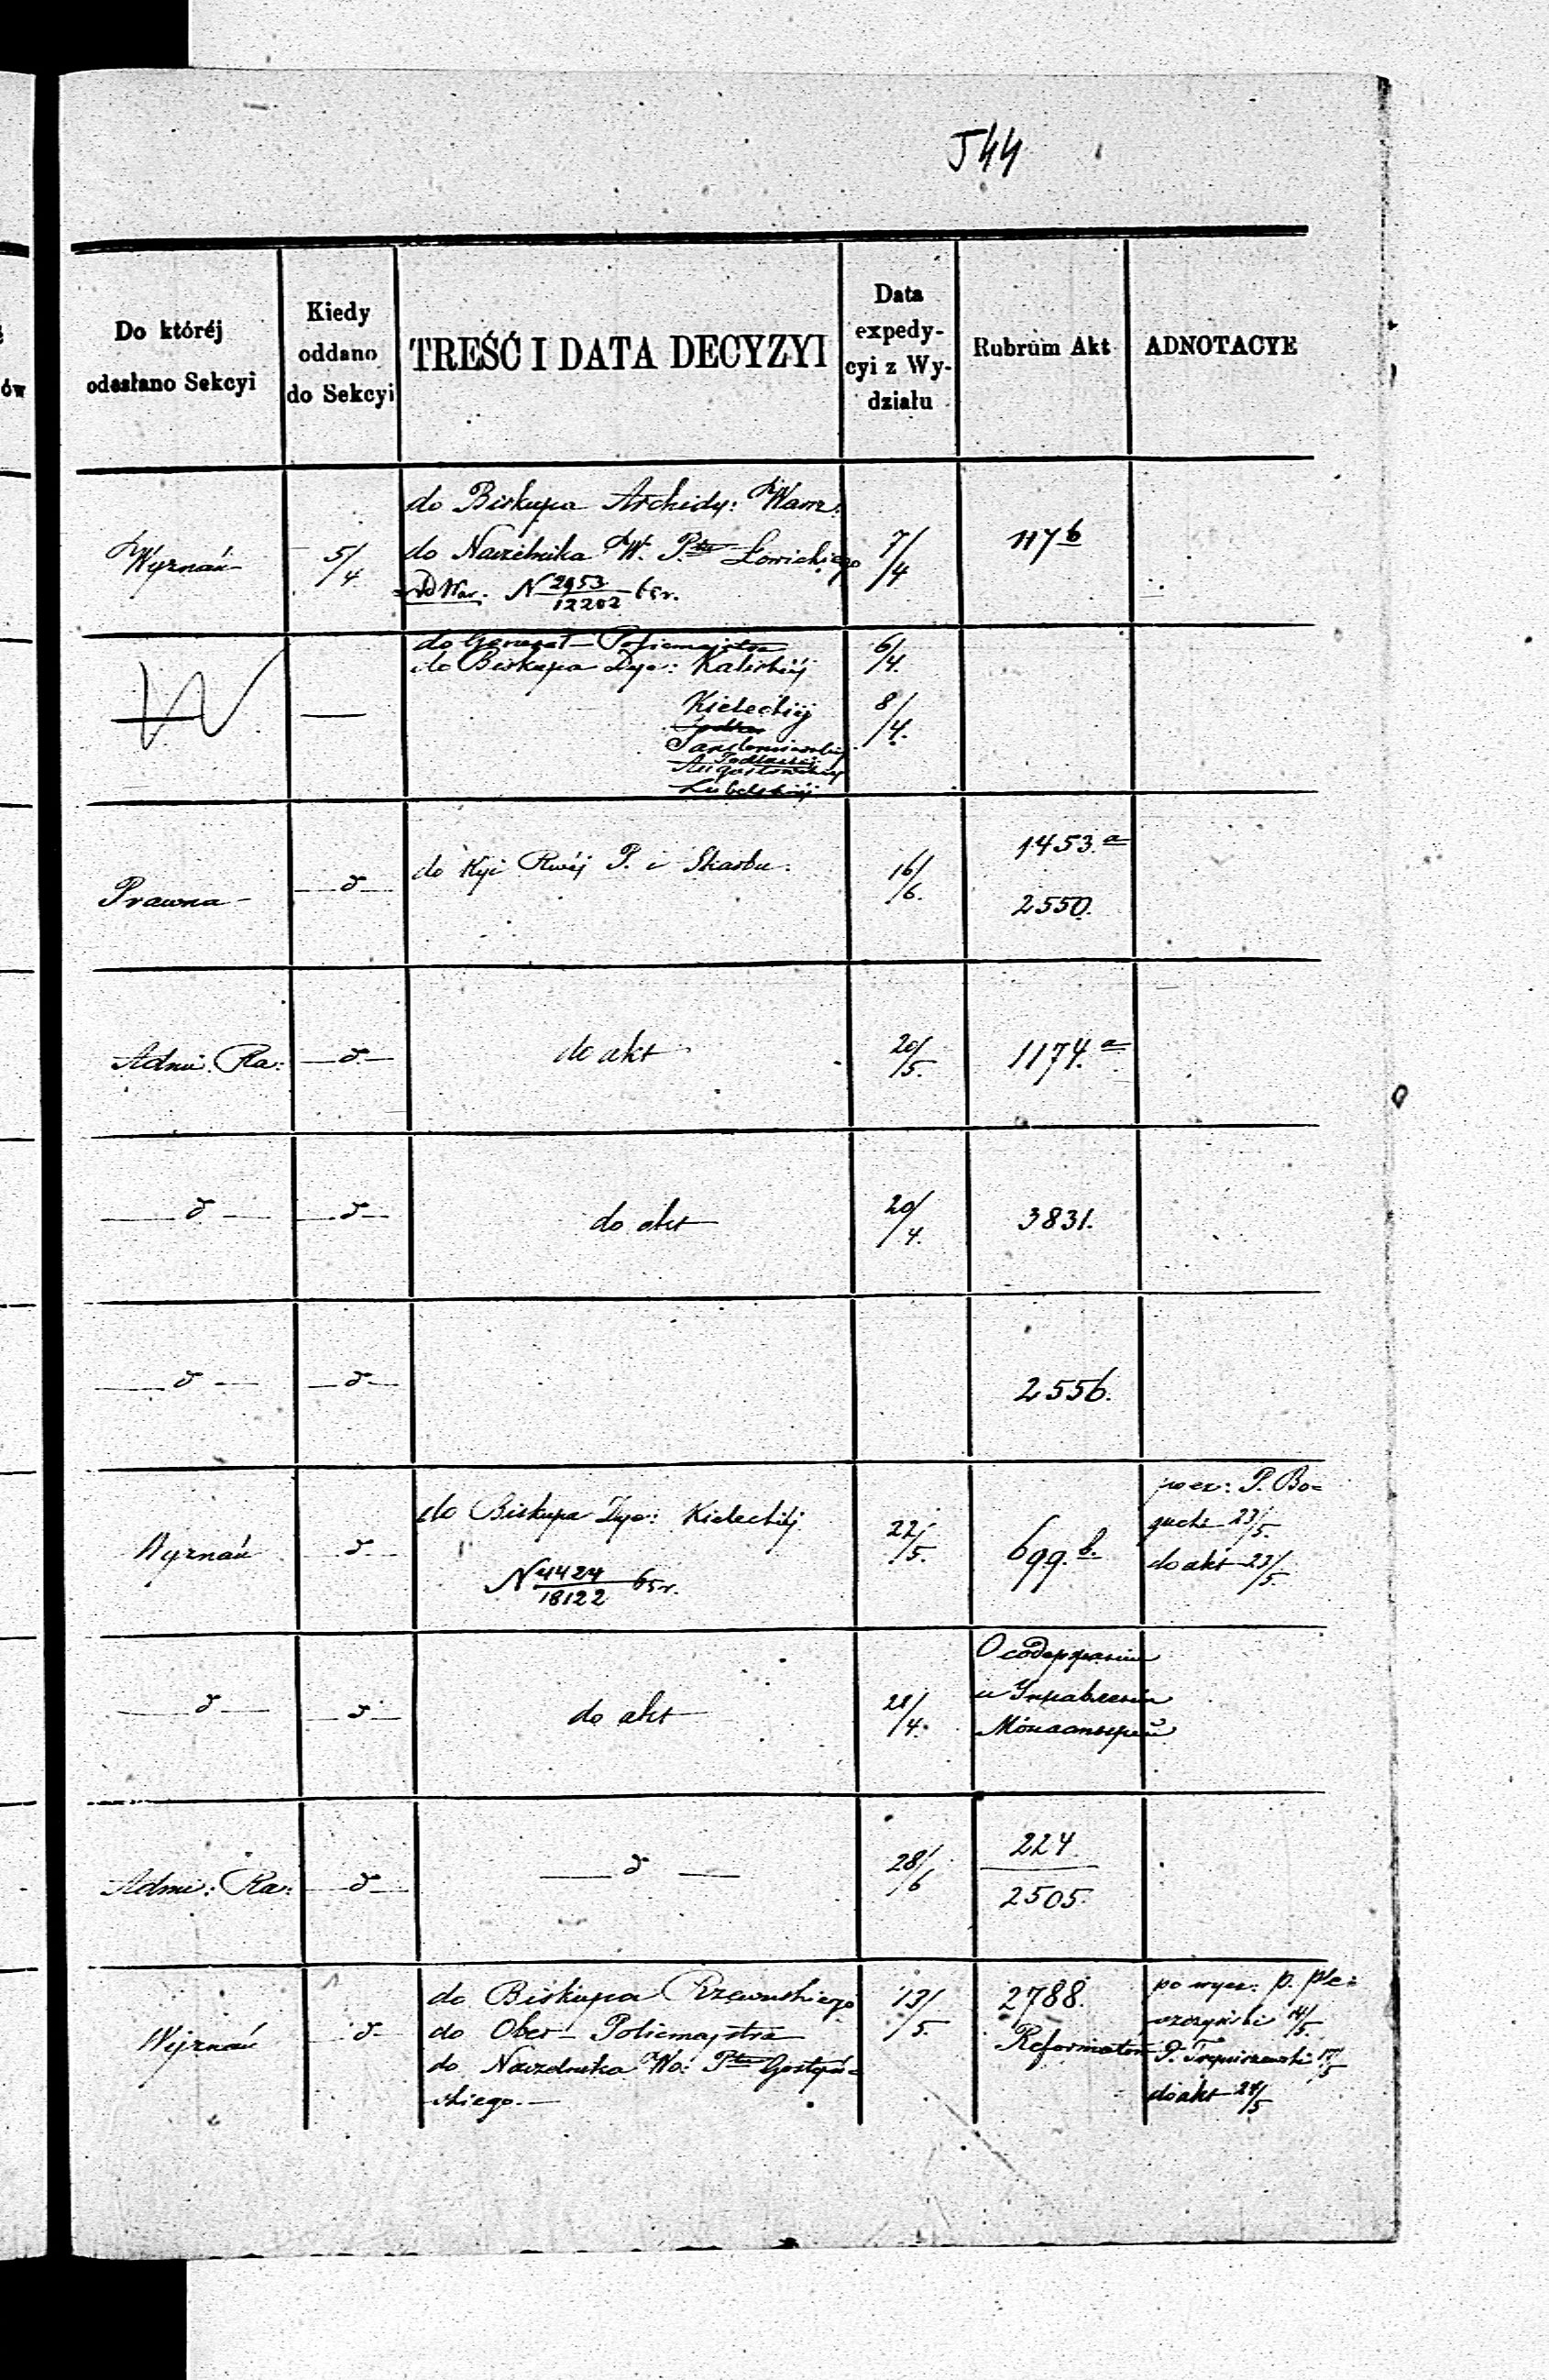 544
Do któréj
odesłano Sekcyi
Kiedy
oddano
do Sekcyi
TREŚĆ I DATA DECYZYI
Data
expedy-
cyi z Wy-
działu
Rubrum Akt
ADNOTACYE
Wyznań
5/4
do Biskupa Archidy: Warsz:
do Naczelnika W. Ptu Łowickiego
N 2953/12202 65 r.
7/4
117 b
do Generał-Policmajstra
do Biskupa Dye: Kaliskiéj
Kieleckiéj
Sandomierskiéj
Podlaskiéj
Augustowskiéj
Lubelskiéj
6/4
8/4.
Prawna
d
do Kyi Rwéj P. i Skarbu.
16/6.
1453.a
2550.
Admi: Ra:
d
do akt
20/5.
1174.a
d
d
do akt
20/4.
3831.
d
d
2556.
Wyznań
d
do Biskupa Dye: Kieleckiéj
N 4424/18122 65 r.
22/5.
699.b.
P. Bo=
23/5.
do akt 23/5.
d
d
do akt
21/4.
О содержании
и Управлении
Монастырей
Admi: Ra:
d
d
28/6
224
2505.
Wyznań
d
do Biskupa Rzewuskiego
do Ober-Policmajstra
do Naczelnika Wo: Ptu Gostyń=
skiego.
13/5.
2788.
Reformatów
14/5.
17/5
do akt 24/5